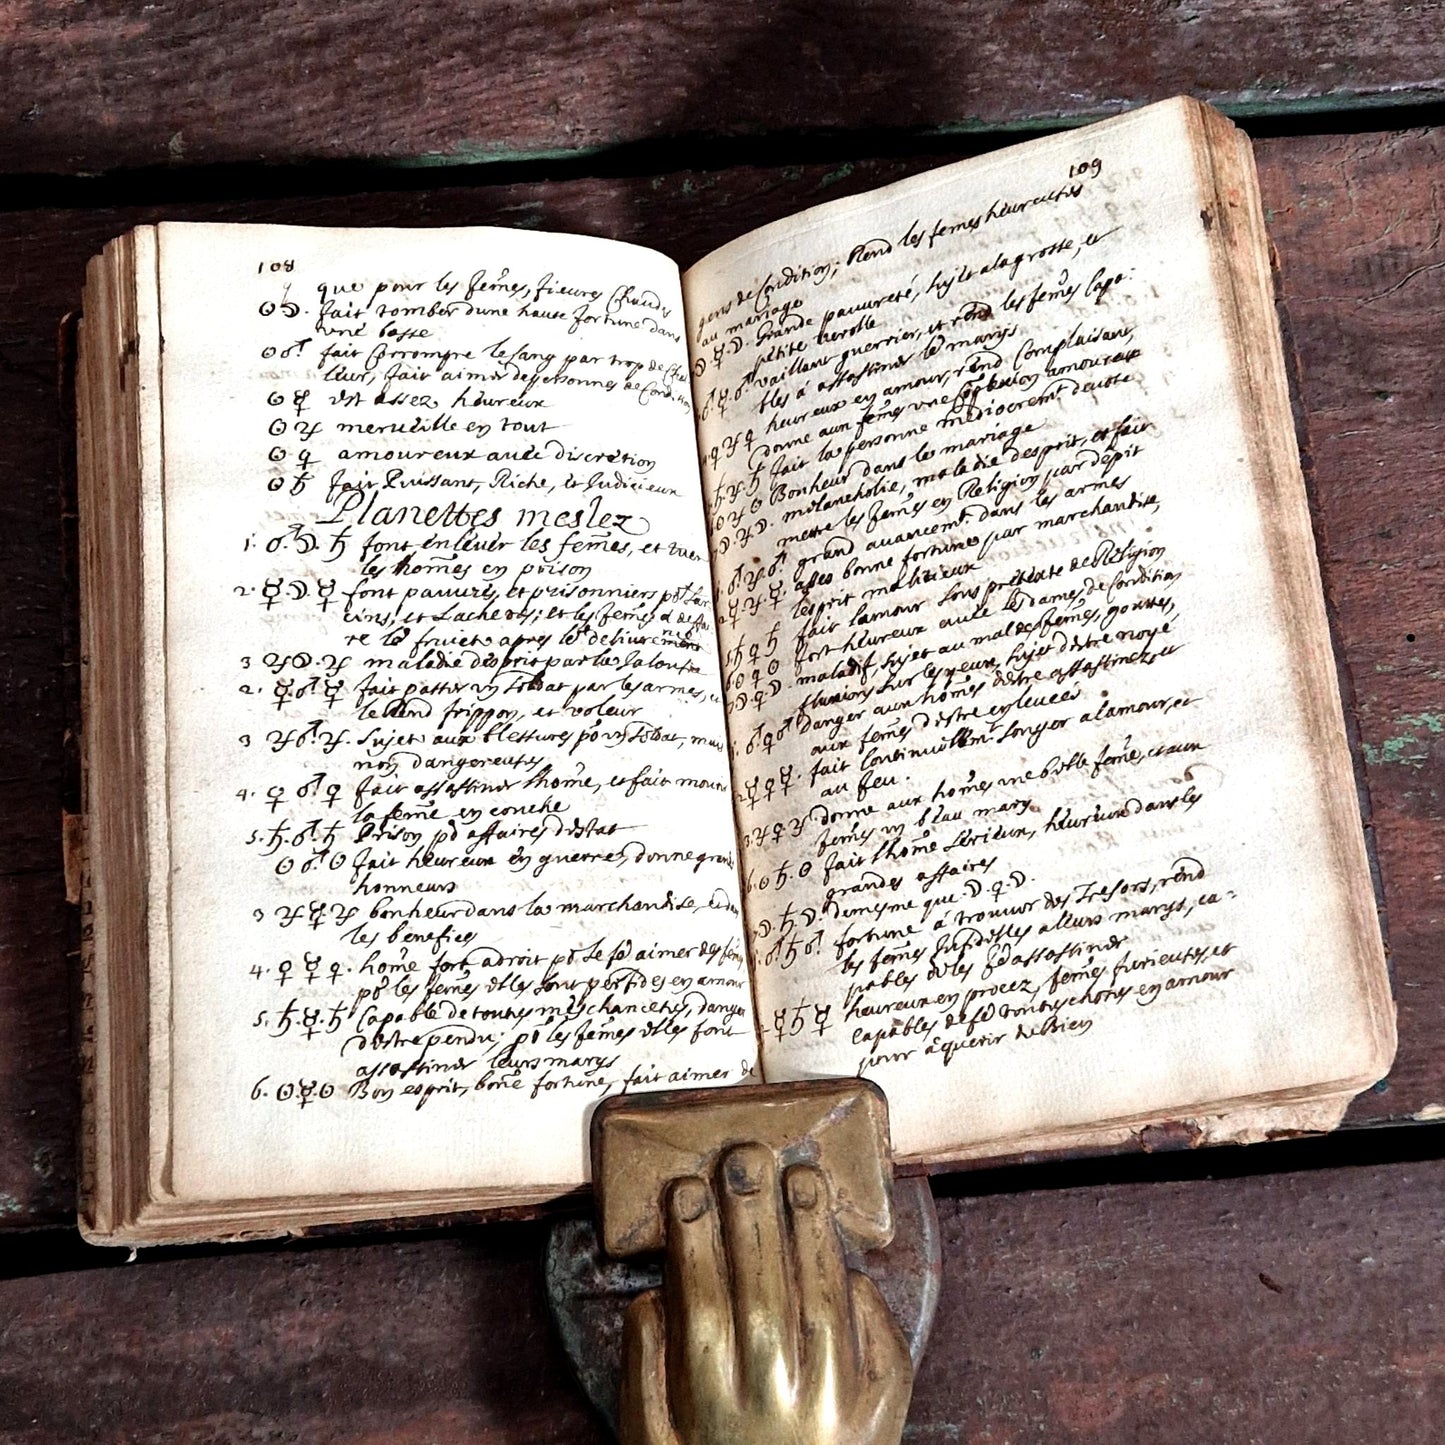 108
que pour les fem̃es, fieures Chaudes
☉☽. fait tomber dune haute fortune dans
une basse
☉♂ fait Corrompre le sang par trop de Cha
leur, fait aimer des personnes de Condition
☉☿ est assez heureux
☉♃ merueille en tout
☉♀ amoureux auec discretion
☉♄ fait Puissant, Riche, et Judicieux
Planettes meslez
1. ♂.☽.♄ font enleuer les fem̃es, et tuer
les hom̃es en prison
2. ☿.☽.☿ font pauures, et prisonniers pr Lar
cins, et Lachetes; et les fem̃es a defai
re le fruict apres le delivrement
3 ♃☽.♃ maladie desprit par la Jalousie
2. ☿.♂.☿ fait passer un soldat par les armes, et
le Rend frippon, et voleur
3 ♃♂.♃. sujet aux blessures pr un soldat, mais
non dangereuses
4. ♀♂♀ fait assassiner lhom̃e, et fait mourir
la fem̃e en couche
5. ♄.♂.♄ Prison pr affaires destat
☉♂.☉ fait heureux en guerre, donne grands
honneurs
3 ♃☿♃ bonheur dans la marchandise, et dans
les benefices
4. ♀☿♀. hom̃e fort adroit pr se fe aimer des fem̃es
pr les fem̃es elles sont perfides en amour
5. ♄.☿.♄ Capable de toutes meschancetes, danger
destre pendu; pr les fem̃es elles font
assassiner leurs marys
6. ☉☿☉ Bon esprit, bonne fortune, fait aimer de
109
gens de Condition; Rend les femes heureuses
au mariage
☽.☿.☽. Grande pauureté, sujet a la grosse, et
petite verolle
♂.☿.♂ vaillant guerrier, et rend les fem̃es capa:
bles à assassiner le marys
♀♃♀ heureux en amour, rend Complaisant,
donne aux fem̃es une amoureux
♄.♃.♄ fait la personne mediocremt deuote
☉♃☉ Bonheur dans le mariage
☽.♃.☽. melancholie, maladie desprit, et fait
mettre les fem̃es en Religion par depit
♂♃♂ grand auancemt dans les armes
☿.♃.☿. assés bonne fortune par marchandise,
lesprit malitieux
♄♀♄ fait lamour sous pretexte de Religion
6☉♀☉ fort heureux auec les dames, de Condition
☽.♀.☽. maladif, sujet au mal des fem̃es, gouttes,
fluxions sur les yeux, sujet destre noyé
1. ♂♀♂ danger aux hom̃es destre assassinez, et
aux fem̃es destre enleuées
2☿♀☿. fait Continuellemt songer a lamour, et
au feu.
3.♃♀♃ donne aux hom̃es une belle fem̃e, et aux
fem̃es un beau mary
6.☉♄.☉ fait lhom̃e serieux, heureux dans les
grandes affaires
☽♄☽. demesme que ☽.♀.☽.
1.♂♄♂ fortune à trouuer des Tresors, rend
les fem̃es Jnfidelles a leurs marys, ca-
pables de les fe assassiner
☿♄☿ heureux en procez, fem̃es furieuses, et
Capables de fe toutes choses en amour
pour aquerir du Bien